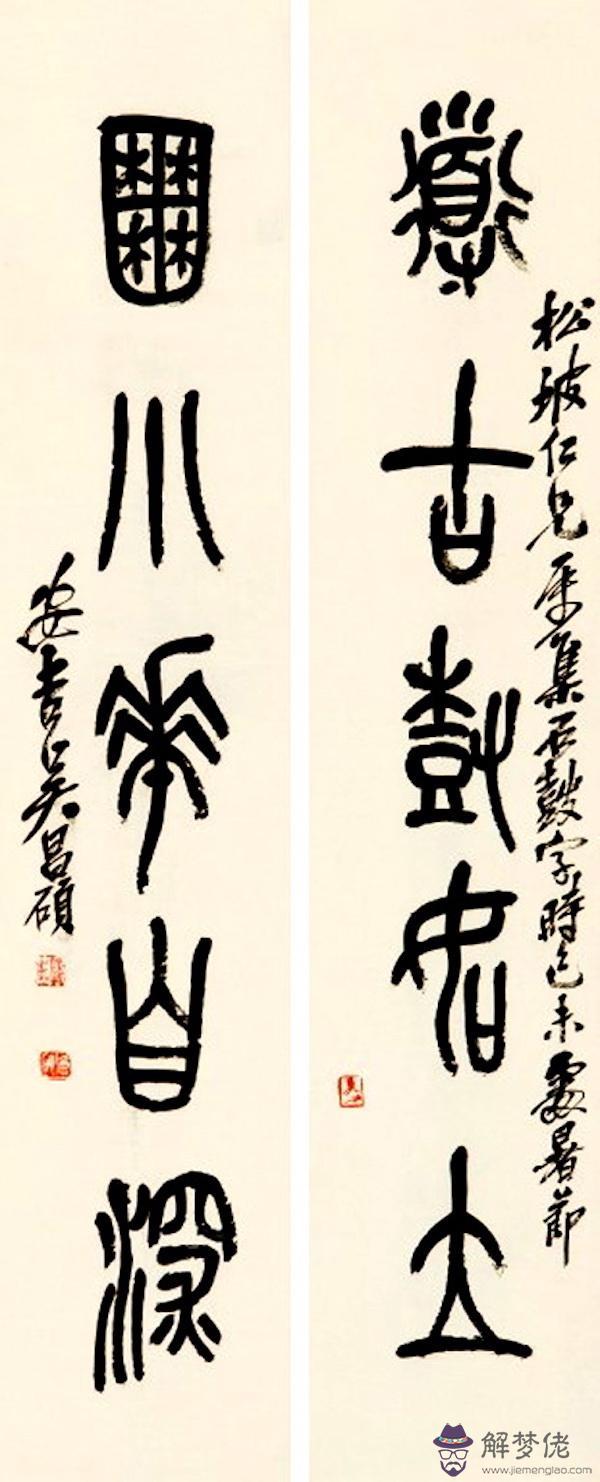 導古尌如立
松坡仁兄屬集石鼓字時己未處暑節
囿小華自深
安吉吳昌碩
解梦佬
www.jiemenglao.com